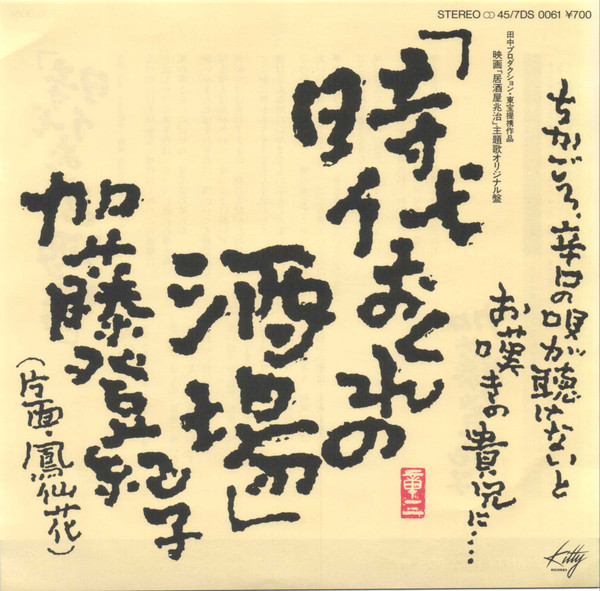 STEREO 45/7DS 0061 ¥700
田中プロダクション・東宝提携作品
映画「居酒屋兆治」主題歌オリジナル盤
ちかごろ、辛口の唄が聴けないと
お嘆きの貴兄に・・・・
「時代おくれの
酒場」
加藤登紀子
(片面・鳳仙花)
Kitty
RECORDS